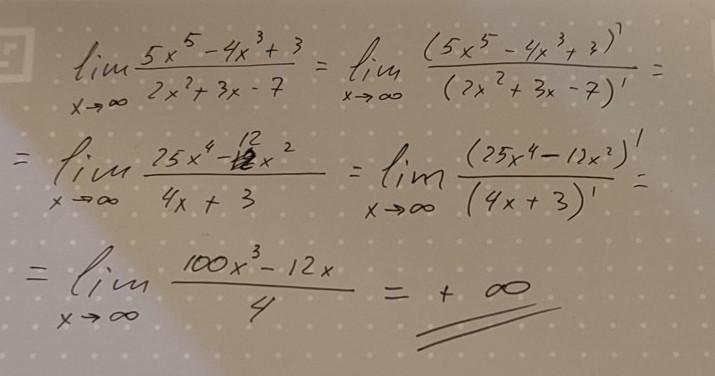 lim x→∞ (5x⁵ - 4x³ + 3)/(2x² + 3x - 7) = lim x→∞ (5x⁵ - 4x³ + 3)'/(2x² + 3x - 7)' =
= lim x→∞ (25x⁴ - 12x²)/(4x + 3) = lim x→∞ (25x⁴ - 12x²)'/(4x + 3)' =
= lim x→∞ (100x³ - 12x)/4 = + ∞